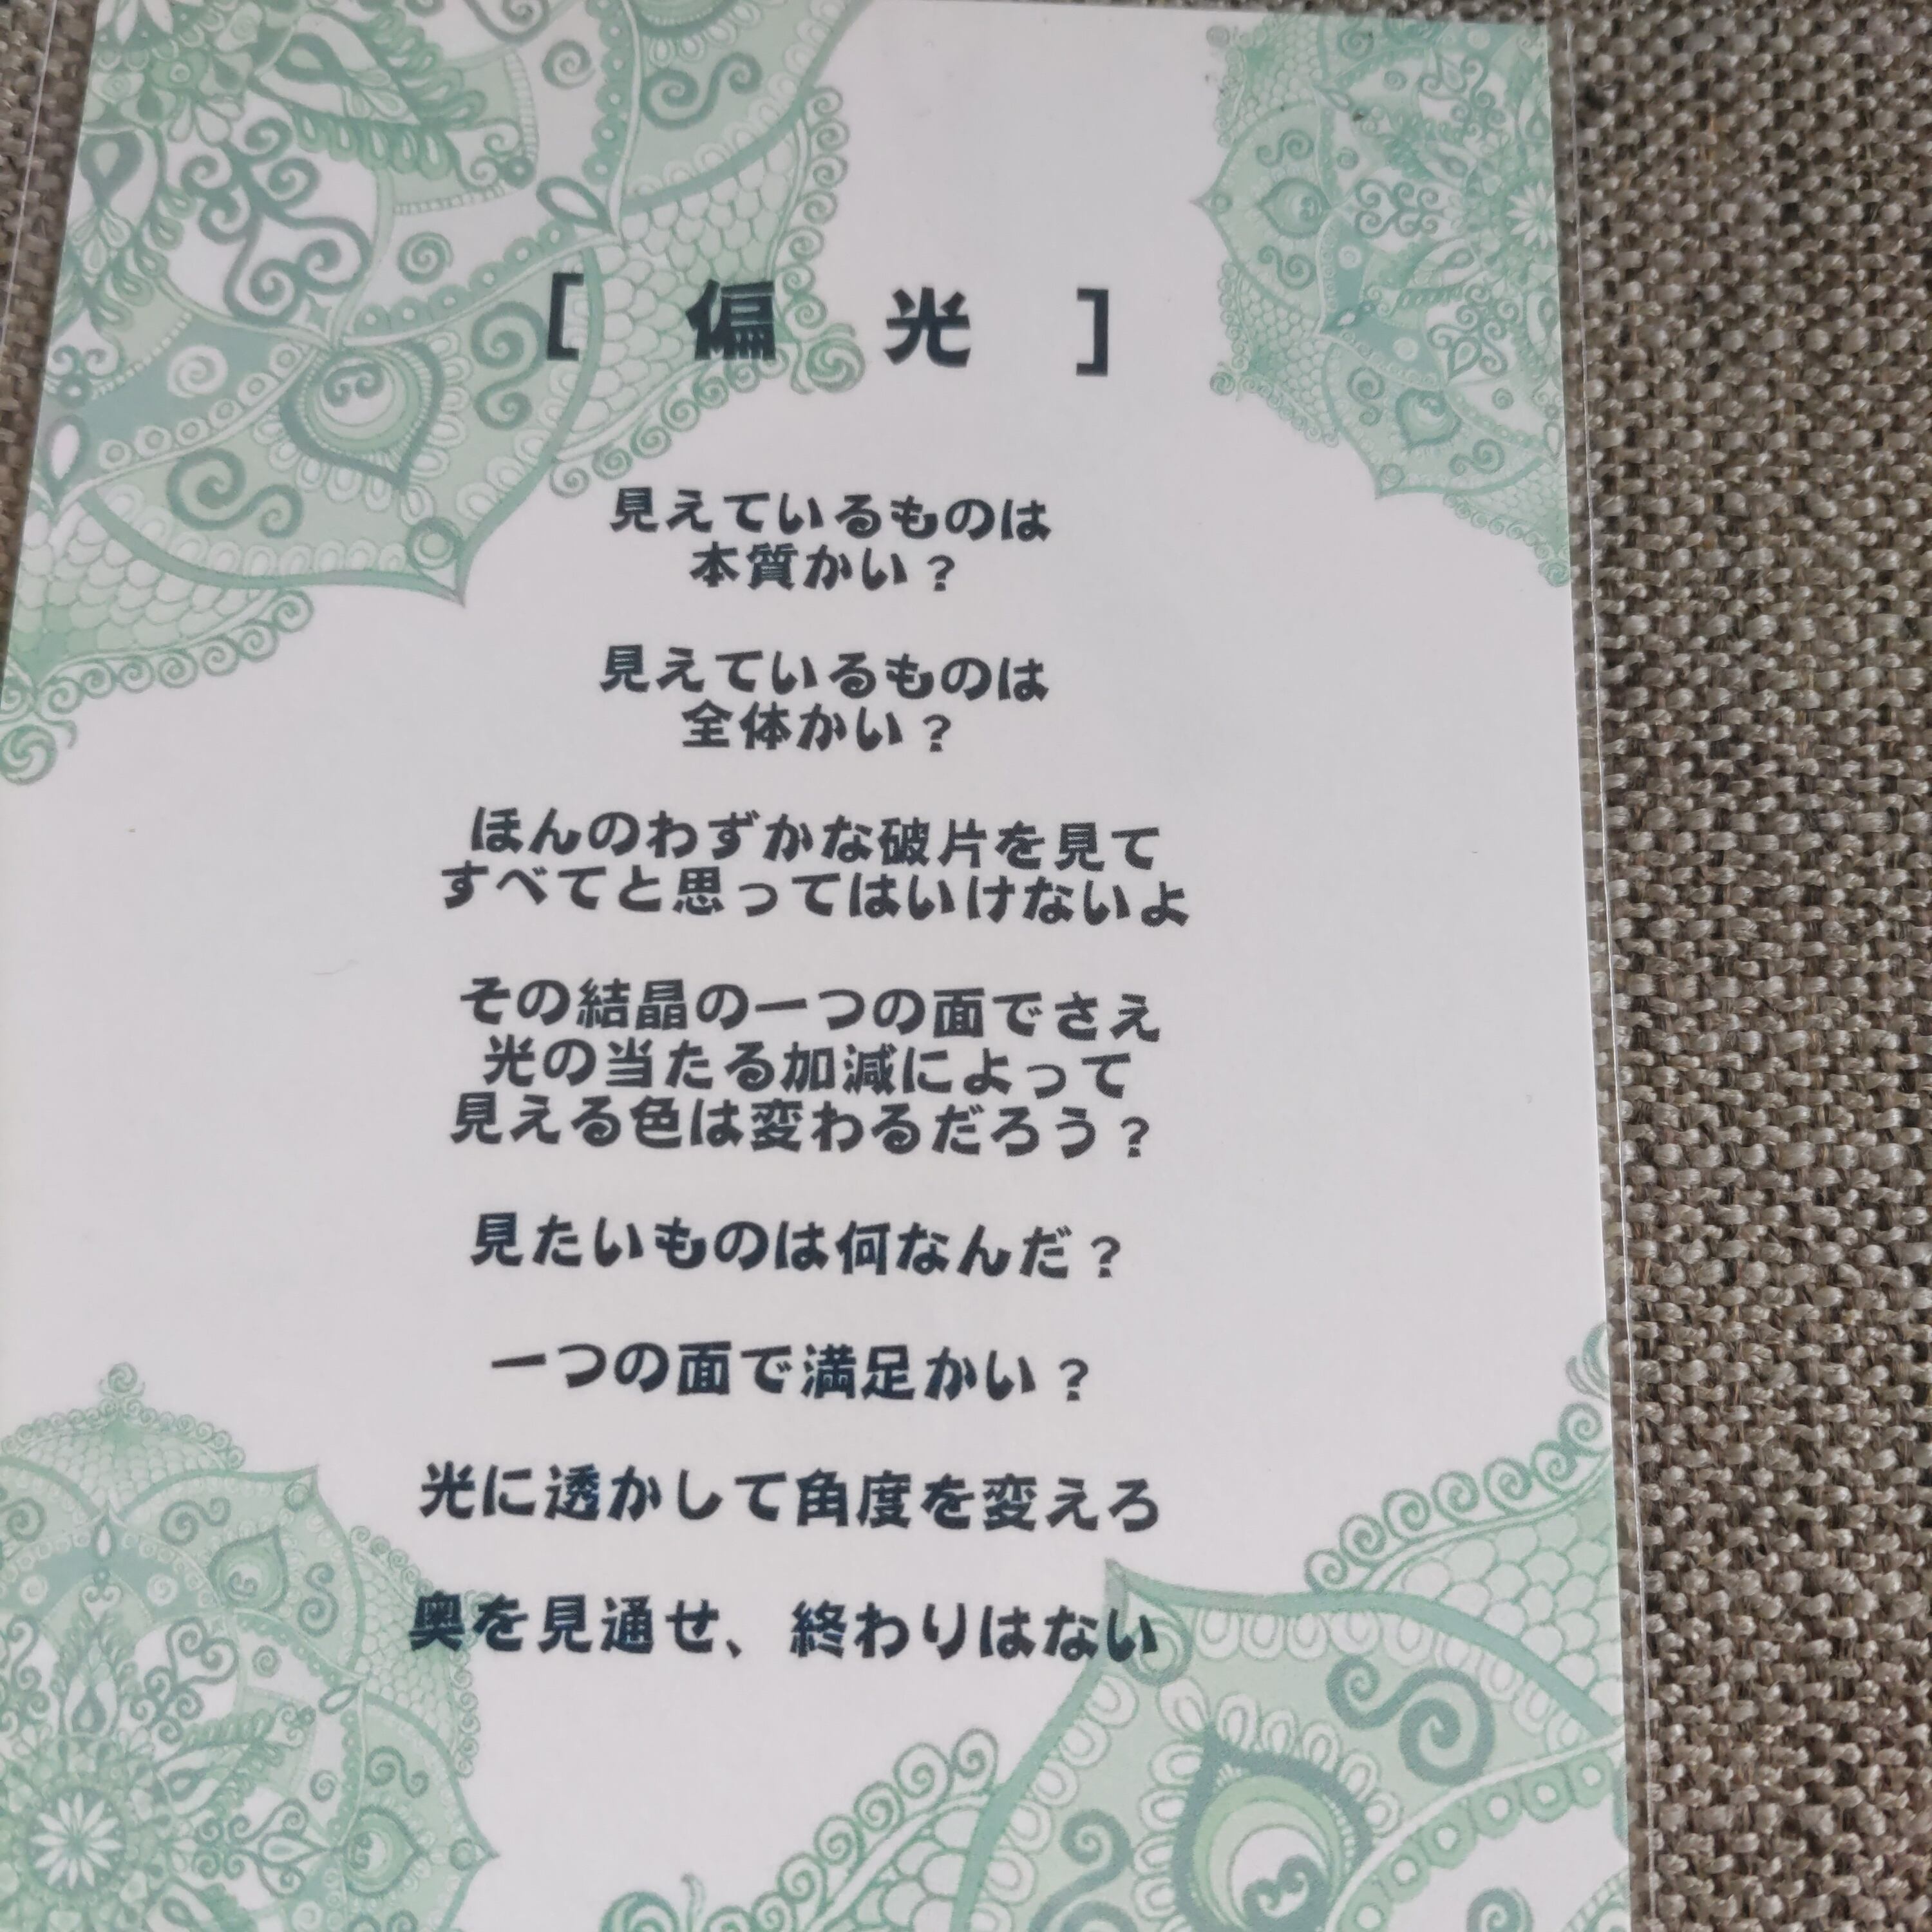 [ 偏 光 ]
見えているものは
本質かい?
見えているものは
全体かい?
ほんのわずかな破片を見て
すべてと思ってはいけないよ
その結晶の一つの面でさえ
光の当たる加減によって
見える色は変わるだろう?
見たいものは何なんだ?
一つの面で満足かい?
光に透かして角度を変えろ
奥を見通せ、終わりはない